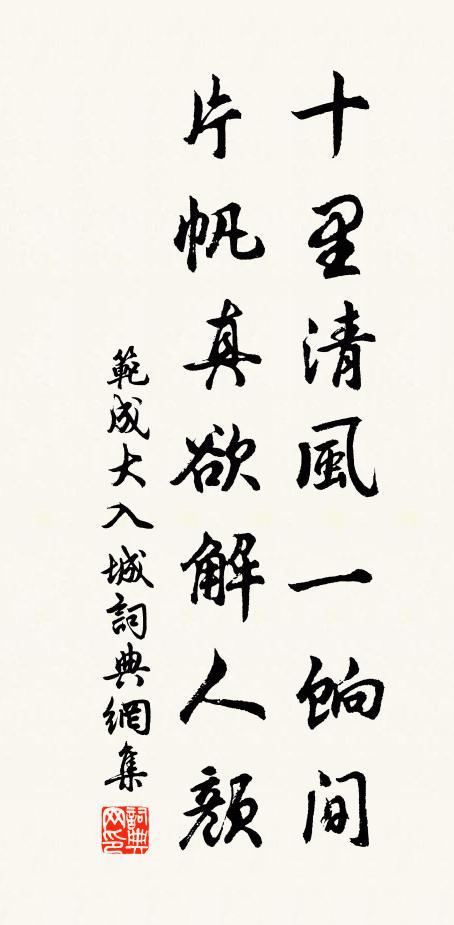 十里清風一餉间
片帆真欲解人顔
範成大入城詞典網集
詞典网印